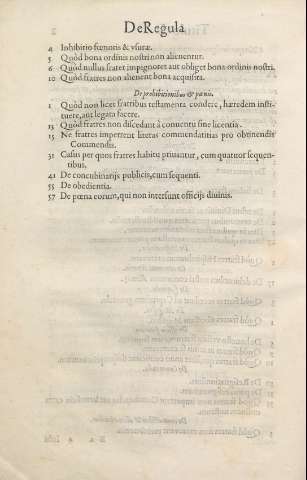 DeRegula
4 Inhibitio fœnoris & vsuræ.
5 Quòd bona ordinis nostri non alienentur.
6 Quòd nullus frater impignoret aut obliget bona ordinis nostri.
10 Quòd fratres non alienent bona acquisita.
De prohibitionibus & pœnis.
1 Quòd non licet fratribus testamenta condere, hæredem insti-
tuere, aut legata facere.
13 Quòd fratres non discedant à conuentu sine licentia.
15 Ne fratres impetrent literas commendatitias pro obtinendis
Commendis.
31 Casus per quos fratres habitu priuantur, cum quatuor sequen-
tibus.
41 De concubinarijs publicis, cum sequenti.
55 De obedientia.
57 De pœna eorum, qui non intersunt officijs diuinis.